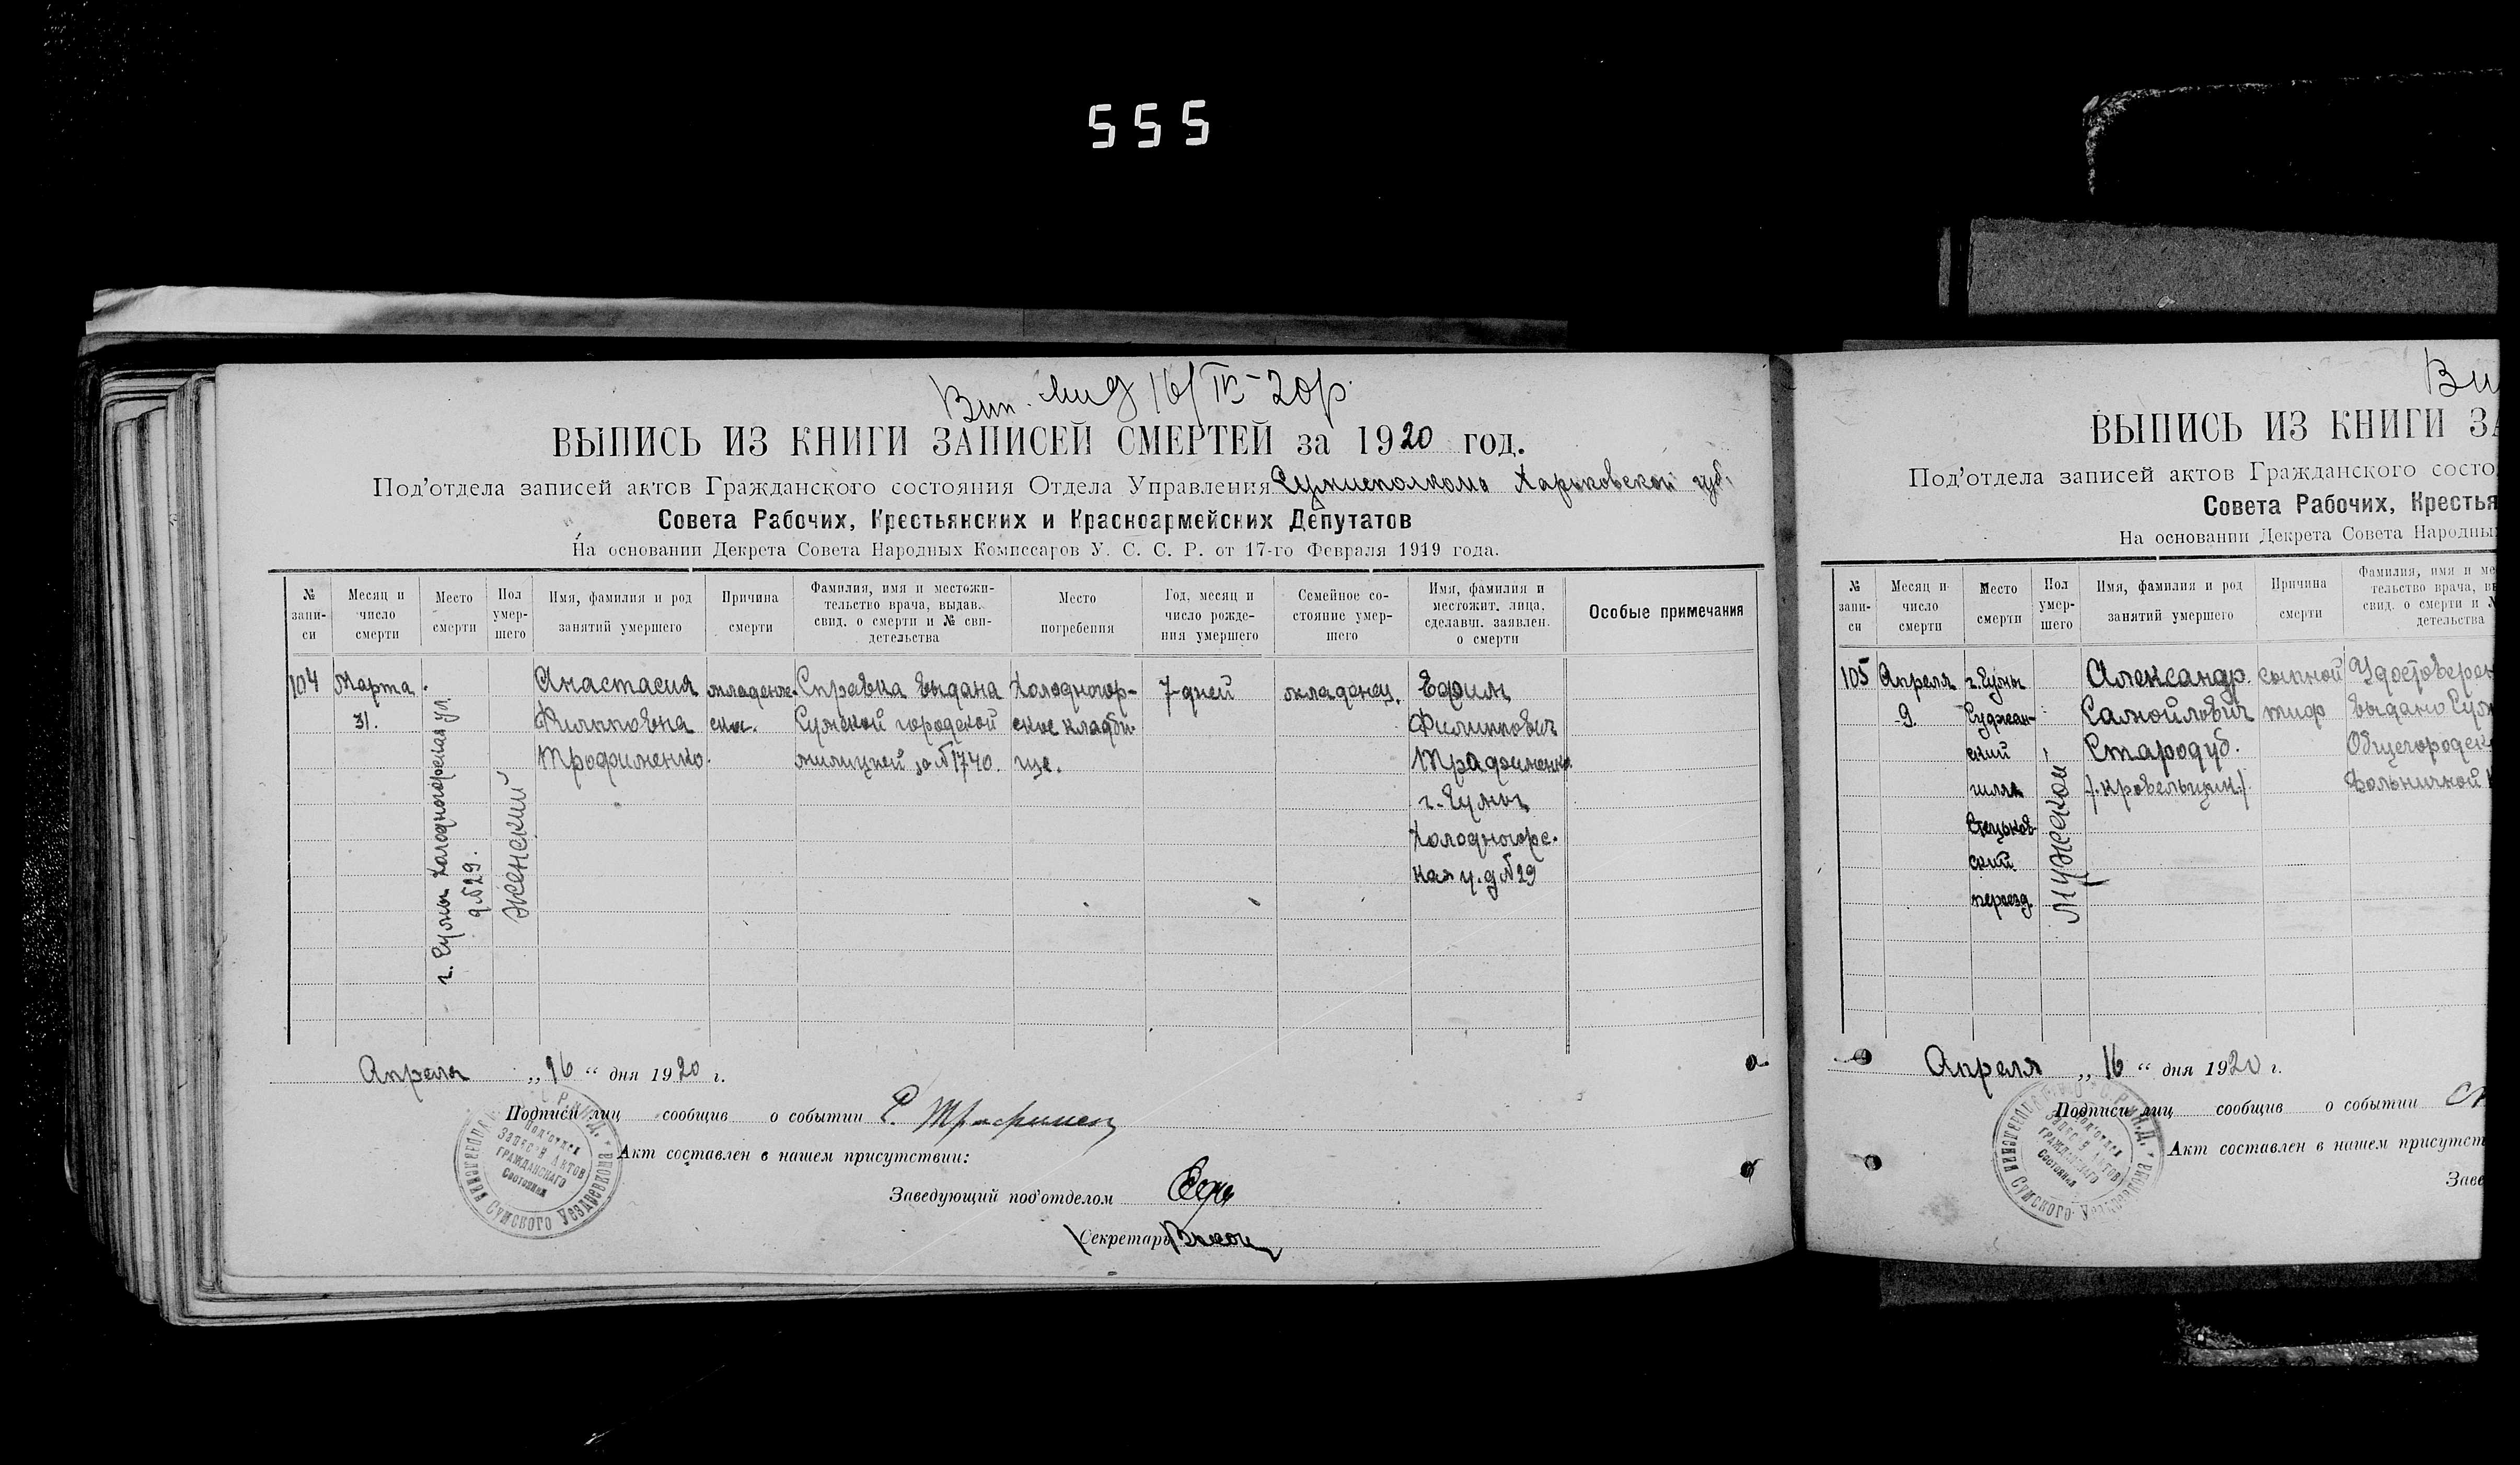 555
Вип. 16/IV-20р.
ВЫПИСЬ ИЗ КНИГИ ЗАПИСЕЙ СМЕРТЕЙ за 1920 год.
Под'отдела записей актов Гражданского состояния Отдела Управления Сумисполкома Харьковской губ.
Совета Рабочих, Крестьянских и Красноармейских Депутатов
На основании Декрета Совета Народных Комиссаров У. С. С. Р. от 17-го Февраля 1919 года.
№ запи-си
Месяц и число смерти
Место смерти
Пол умер-шего
Имя, фамилия и род занятий умершего
Причина смерти
Фамилия, имя и местожи-тельство врача, выдав. свид. о смерти и № сви-детельства
Место погребения
Год, месяц и число рожде-ния умершего
Семейное со-стояние умер-шего
Имя, фамилия и местожит. лица, сделавш. заявлен. о смерти
Особые примечания
104
Марта
31.
г. Сумы Холодногорская ул.
д. №29.
Женский
Анастасия
Филипповна
Трофименко.
младенче-
ска.
Справка выдана
Сумской городской
милицией за №1740.
Холодногор-
ское кладби-
ще.
7-дней
младенец.
Ефим
Филиппович
Трафименко
г. Сумы
Холодногорс-
кая у. д №29
Апреля „16“ дня 1920 г.
Подписи лиц сообщив о событии
Акт составлен в нашем присутствии:
Заведующий под'отделом
Секретарь
Под'отдел
Записей Актов
Гражданскаго
Состояния
Сумского Уездревкома
Ви
ВЫПИСЬ ИЗ КНИГИ ЗА
Под'отдела записей актов Гражданского состо
Совета Рабочих, Крестья
На основании Декрета Совета Народны
№ запи-си
Месяц и число смерти
Место смерти
Пол умер-шего
Имя, фамилия и род занятий умершего
Причина смерти
Фамилия, имя и ме
тельство врача, в
свид. о смерти и №
детельства
105
Апреля
9.
г. Сумы
Суджан-
ский
шлях
Стецьков-
ский
переезд.
Мужской
Александр
Самойлович
Стародуб.
/.кровельщик./
сыпной
тиф
Удостоверен
выдано Сум
Общегородск
больничкой
Апреля „16“ дня 1920 г.
Подписи лиц сообщив о событии
Акт составлен в нашем присутст
Заве
Под'отдел
Записей Актов
Гражданскаго
Состояния
Сумского Уездревкома